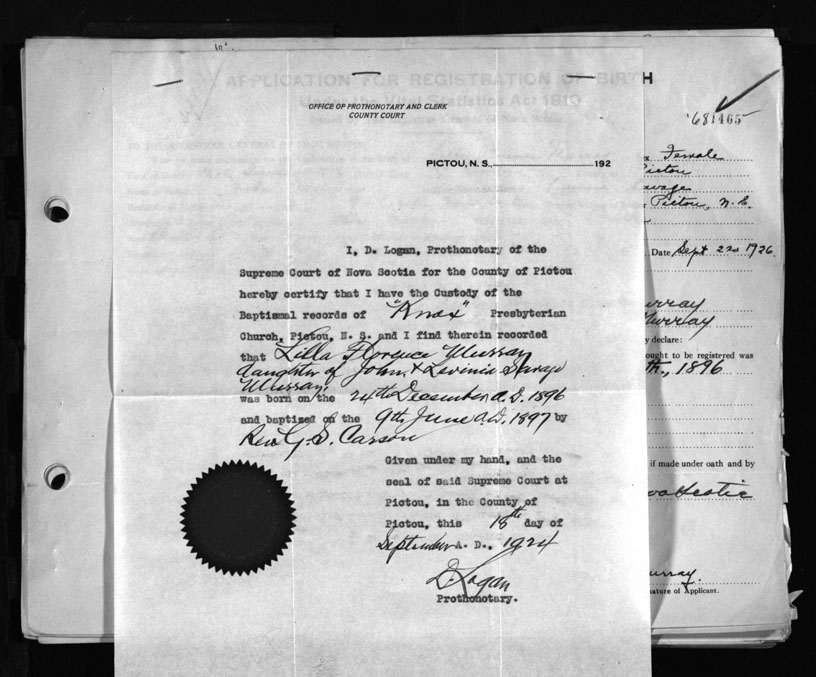 APPLICATION FOR REGISTRATION OF BIRTH
Under the Vital Statistics Act 1919
681465
OFFICE OF PROTHONOTARY AND CLERK
COUNTY COURT
PICTOU, N. S., 192
I, D. Logan, Prothonotary of the
Supreme Court of Nova Scotia for the County of Pictou
hereby certify that I have the Custody of the
Baptismal records of "Knox" Presbyterian
Church, Pictou, N. S. and I find therein recorded
that Lilla Florence Murray
daughter of John & Levinia Savage
Murray
was born on the 24th December A.D. 1896
and baptized on the 9th June A.D. 1897 by
Rev. G. S. Carson
Given under my hand, and the
seal of said Supreme Court at
Pictou, in the County of
Pictou, this 18th day of
September A. D., 1924
D. Logan
Prothonotary.
Female
Pictou
Savage
Pictou, N.S.
Date Sept 22nd 1926.
Murray
Murray
y declare:
ought to be registered was
th., 1896
if made under oath and by
Scotia
Murray.
nature of Applicant.